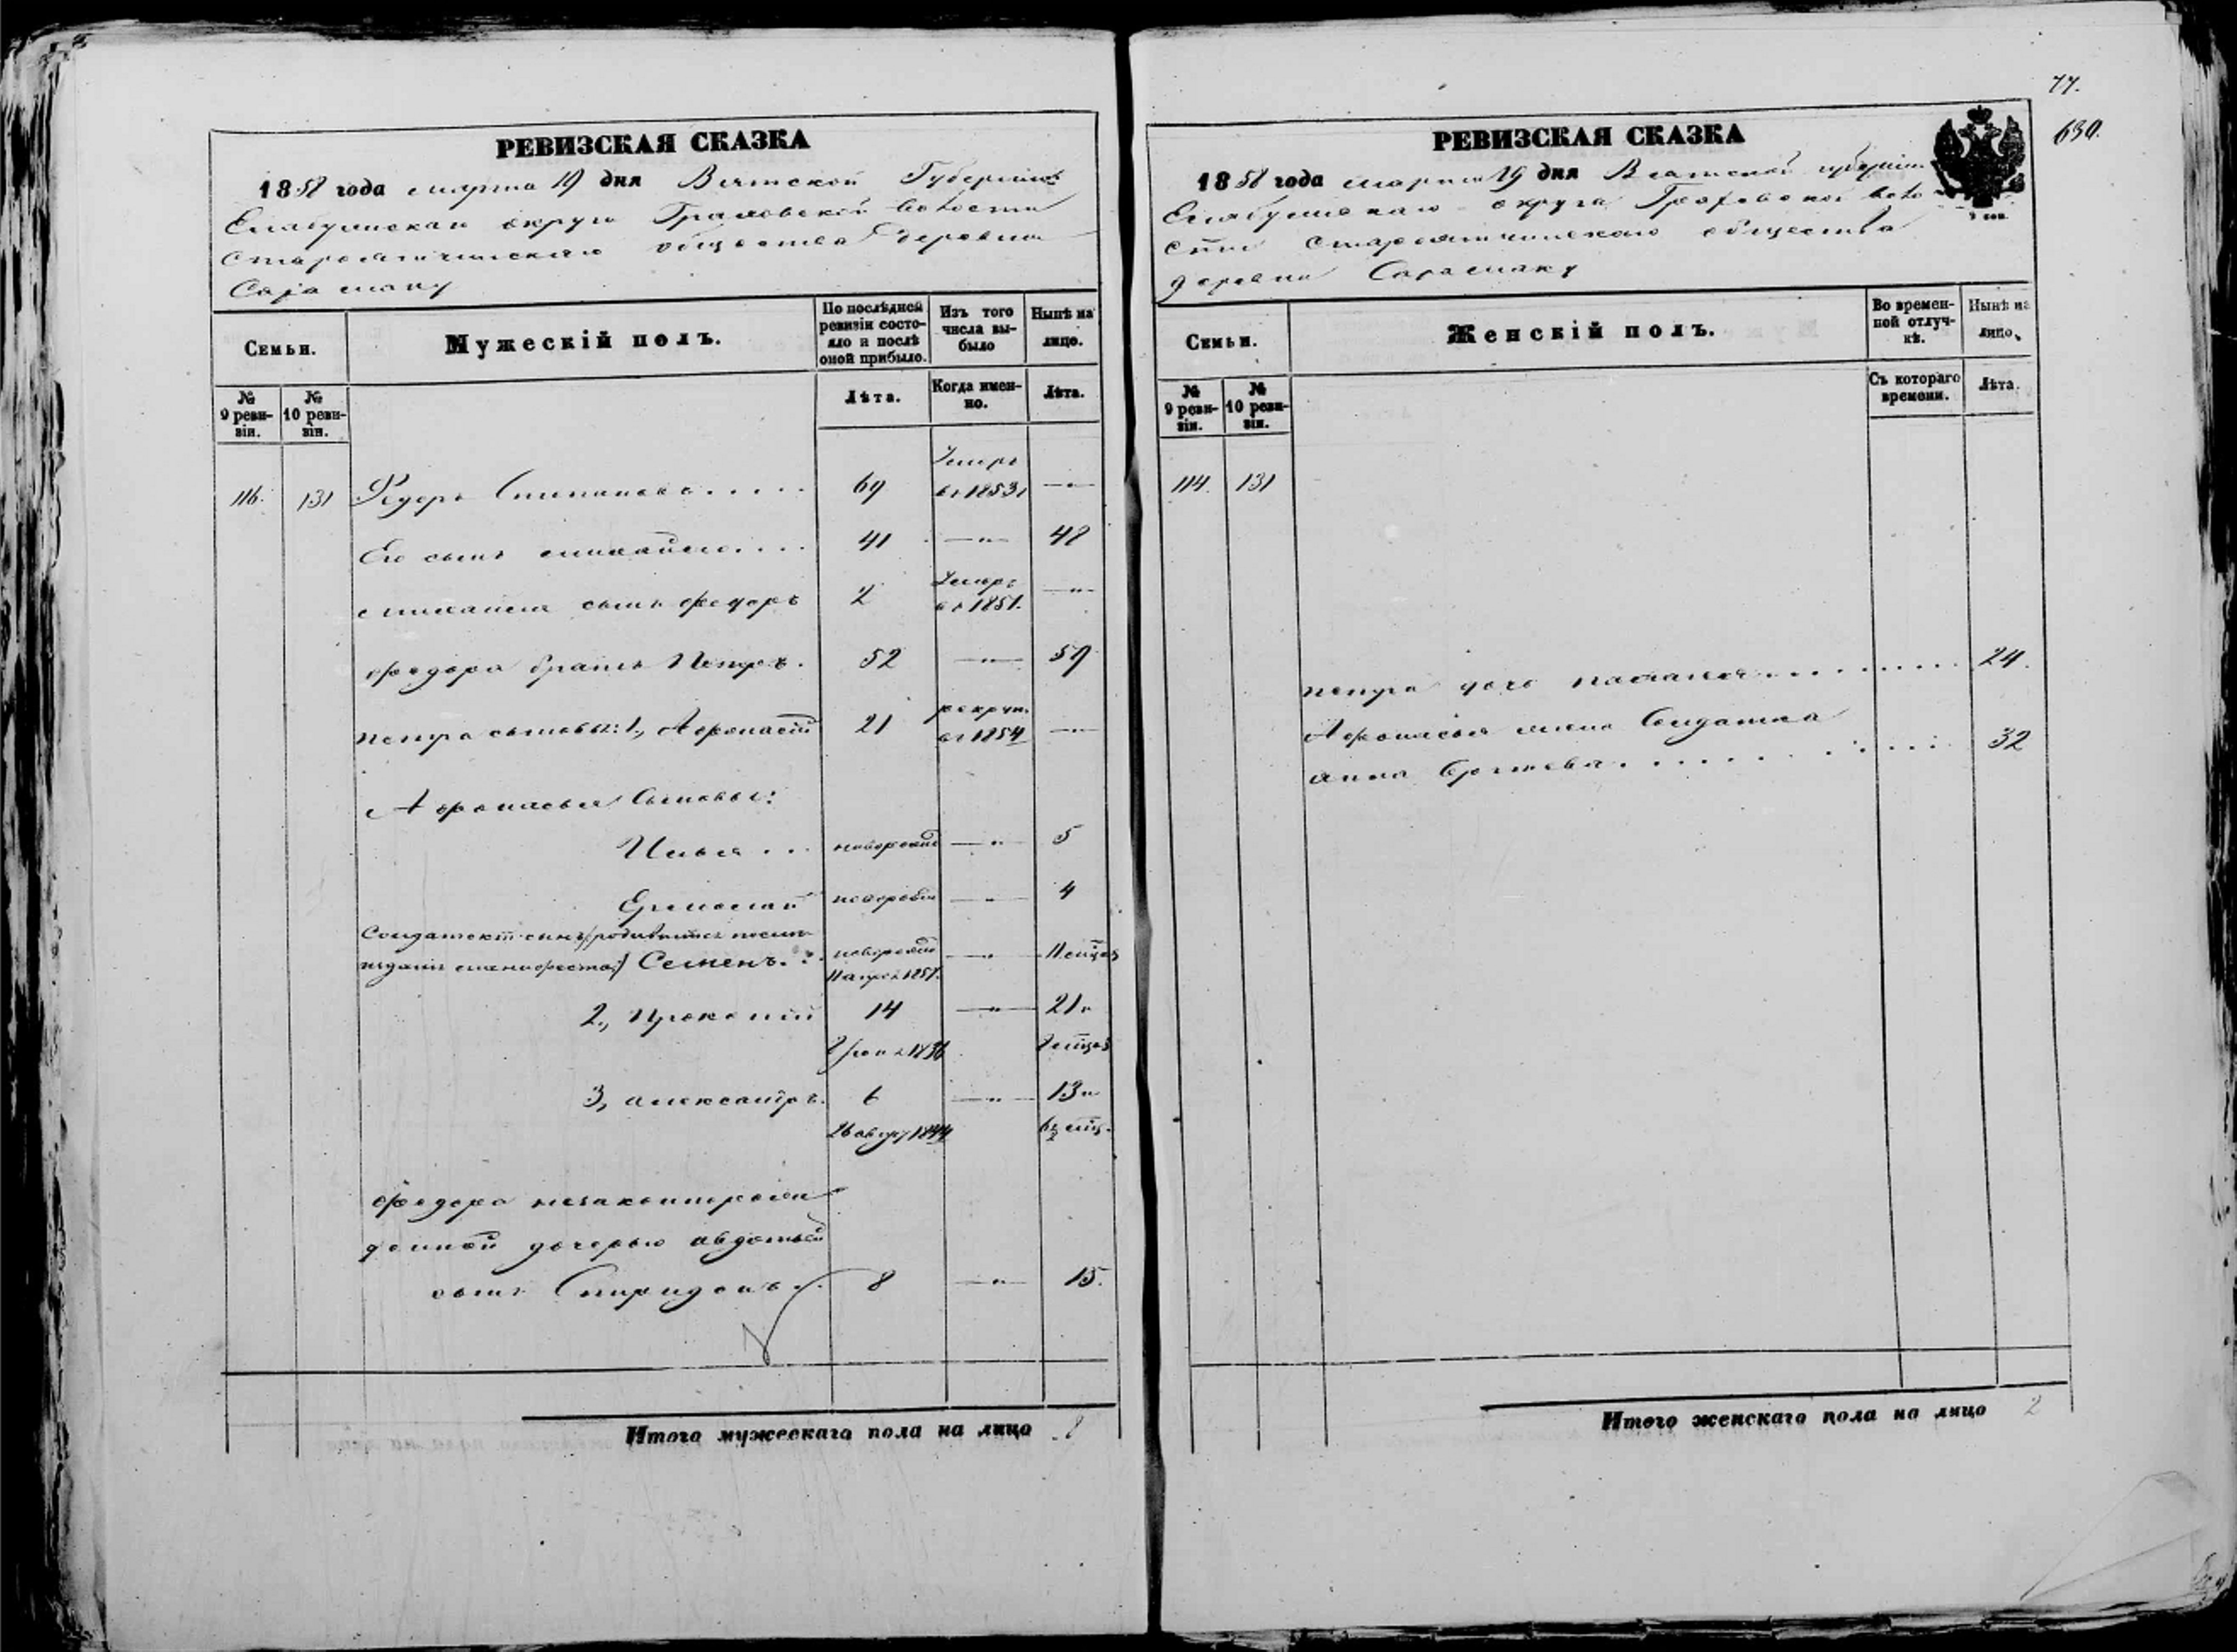 РЕВИЗСКАЯ СКАЗКА
1858 года марта 19 дня Вятской Губерніи
Елабужскаго округа Граховской волости
Староятчинскаго общества деревни
Сарамаку
Семьи.
Мужескій полъ.
По послѣдней ревизіи состояло и послѣ оной прибыло.
Изъ того числа выбыло
Нынѣ на лицо.
№ 9 ревизіи.
№ 10 ревизіи.
Лѣта.
Когда именно.
Лѣта.
116. 131 Федоръ Степановъ..... 69 Умеръ въ 1853 г —„—
Его сынъ Михайло.... 41 —„— 48
Михайла сынъ Федоръ 2 Умеръ въ 1851. —„—
Федора братъ Петръ. 52 —„— 59
Петра сыновья: 1., Афонасій 21 рекрут. въ 1854 —„—
Афонасья Сыновья:
Илья... новорожд —„— 5
Ермолай новорожд —„— 4
Солдатскій сынъ /: родившійся после
изданія манифеста :/ Семенъ. новорожд —„— 11 мѣсяц
11 апрѣ. 1857.
2., Прокопій 14 —„— 21 и
1836
3, Александръ. 6 —„— 13 и
26 авгус 1844 6½ мѣс.
Федора незаконнорож
денной дочерью Авдотьей
сынъ Спиридонъ. 8 —„— 15.
Итого мужескаго пола на лицо 8
77.
630.
РЕВИЗСКАЯ СКАЗКА
1858 года марта 19 дня Вятской губерніи
Елабужскаго округа Граховской воло
сти Староятчинскаго общества
деревни Сарамаку
Семьи.
Женскій полъ.
Во временной отлучкѣ.
Нынѣ на лицо.
№ 9 ревизіи.
№ 10 ревизіи.
Съ котораго времени.
Лѣта.
114. 131
Петра дочь Наталья.......... 24.
Афонасья жена Солдатка
Анна..... 32
Итого женскаго пола на лицо 2